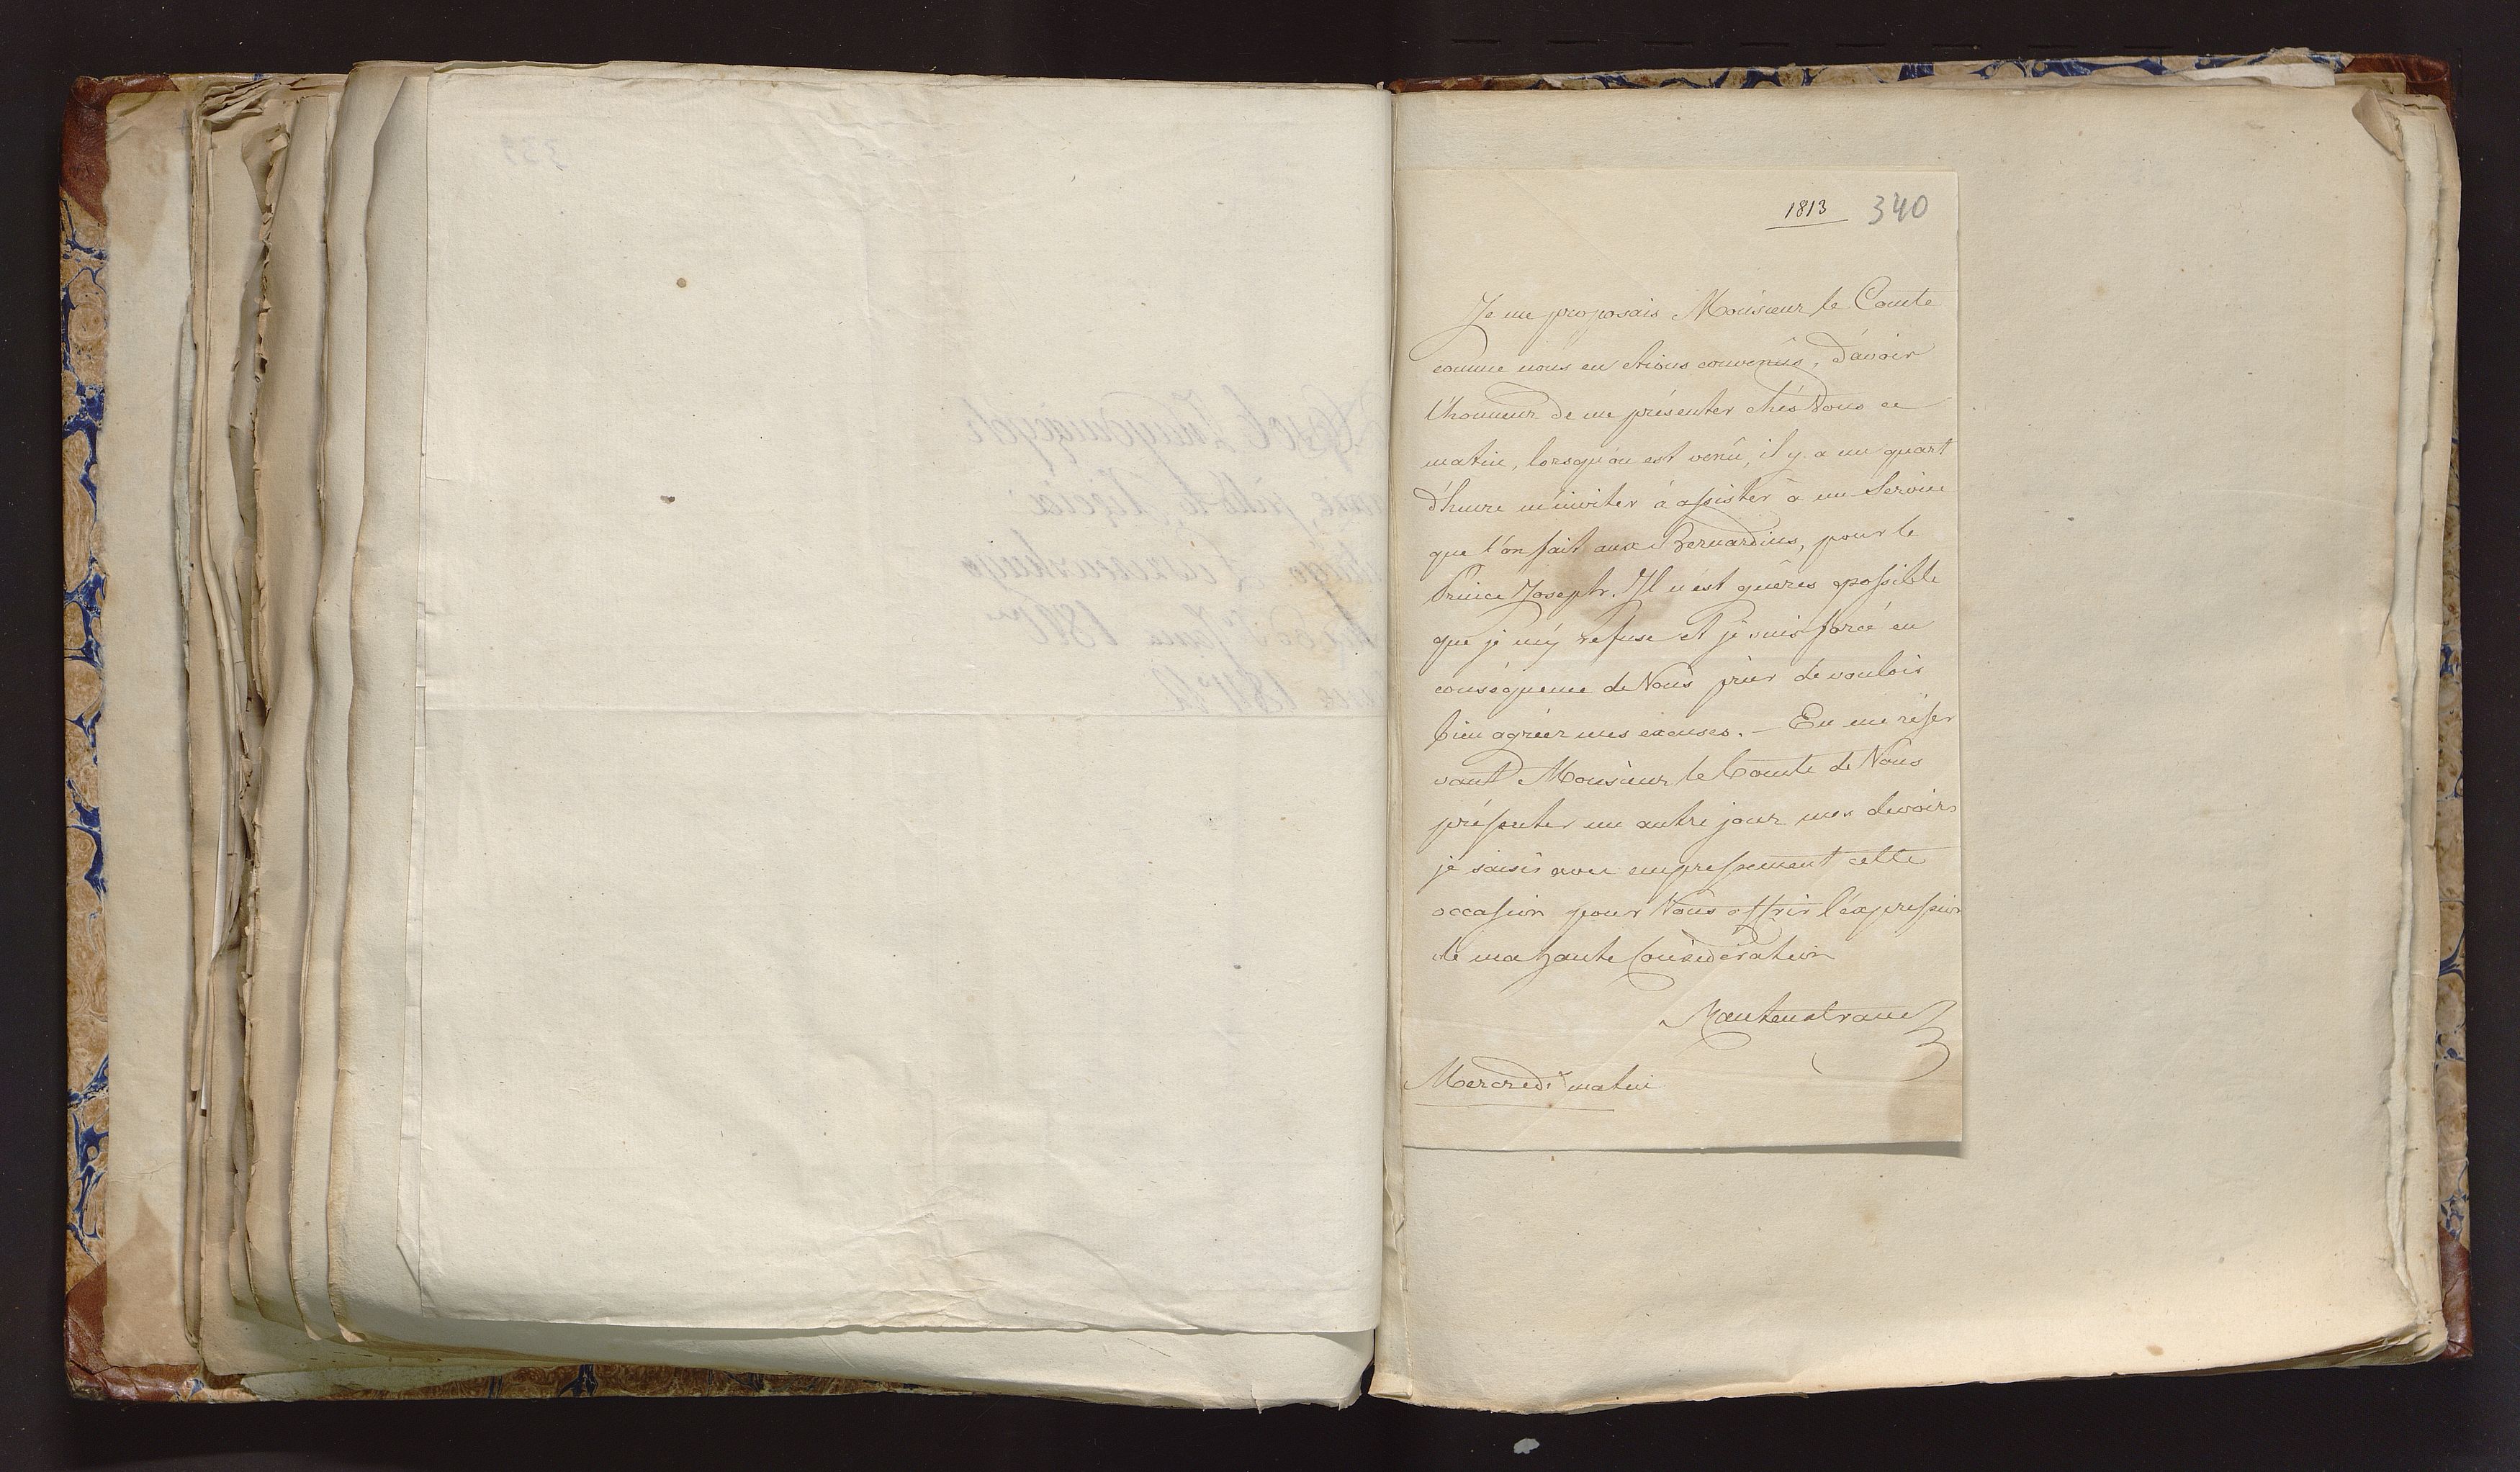 1813 340
Je me proposais Monsieur le Comte
comme nous en étions convenûs, d'avoir
l'honneur de me présenter chés Vous ce
matin, lorsqu'on est venû, il y a un quart
d'heure m'inviter à assister à un Service
que l'on fait aux Bernardins, pour le
Prince Joseph. Il n'est guêres possible
que je m'y refuse et je suis forcé en
conséquence de Vous prier de vouloir
bien agréer mes excuses. — En me réser
vant Monsieur le Comte de Vous
présenter un autre jour mes devoirs
je saisis avec empressement cette
occasion pour Vous offrir l'expression
de ma haute Considération
Mercredi matin